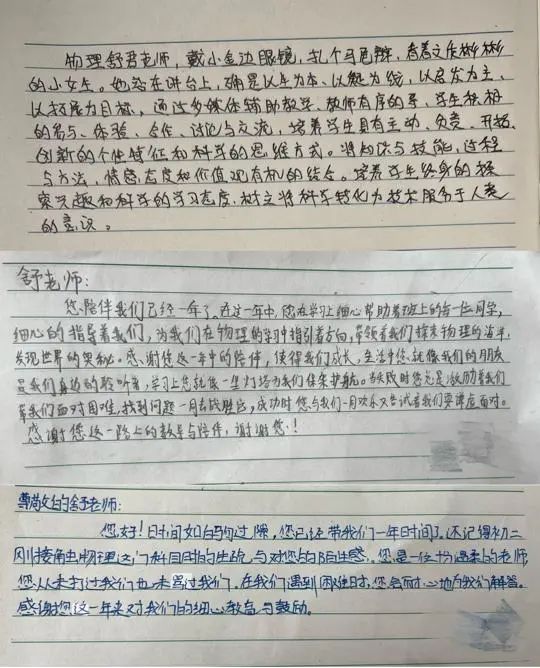 物理舒君老师，戴小金边眼镜，扎个马尾辫，看着文质彬彬
的小女生。她站在讲台上，确是以生为本、以趣为线，以启发为主、
以拓展为目标，通过多媒体辅助教学、教师有序的导、学生积极
的参与、体验、合作、讨论与交流，培养学生具有主动、负责、开拓、
创新的个性特征和科学的思维方式。将知识与技能，过程
与方法，情感态度和价值观有机的结合。培养学生终身的探
索兴趣和科学的学习态度，树立将科学转化为技术服务于人类
的意识。
舒老师：
您陪伴我们已经一年了。在这一年中，您在学习上细心帮助着班上的每一位同学，
细心的指导着我们，为我们在物理的学习中指引着方向，带领着我们探索物理的海洋，
发现世界的奥秘。感谢您这一年中的陪伴，使得我们成长，生活中您就像我们的朋友
是我们身边的聆听者，学习上您就像一星灯塔为我们保驾护航。当失败时您总是激励着我们
带我们面对困难，找到问题一同去战胜它，成功时您与我们一同欢乐又告诫着我们要谦虚面对。
感谢您这一路上的教导与陪伴，谢谢您！
尊尚文的舒老师：
您好！时间如白驹过隙，您已经带我们一年时间了。还记得初二
刚接触物理这门科目时的生疏与对您的陌生感。您是一位十分温柔的老师，
您从未打过我们也未骂过我们。在我们遇到困难时，您会耐心地为我们解答。
感谢您这一年来对我们的细心教育与鼓励。